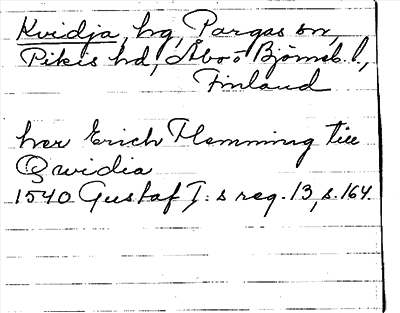 Kvidja, hg, Pargas sn,
Pikis hd, Åbo o Björneb. l.,
Finland
her Erich Flemming till
Qvidia
1540 Gustaf I:s reg. 13, s. 164.